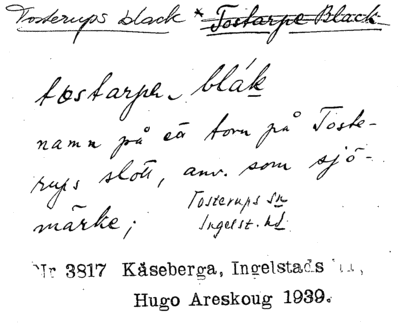 Tosterups black * Tostarpe Black
tostarpa blák
namn på ett torn på Toste-
rups slott, anv. som sjö-
märke;
Tosterups sn
Ingelst. hd
Nr 3817 Kåseberga, Ingelstads
Hugo Areskoug 1939.